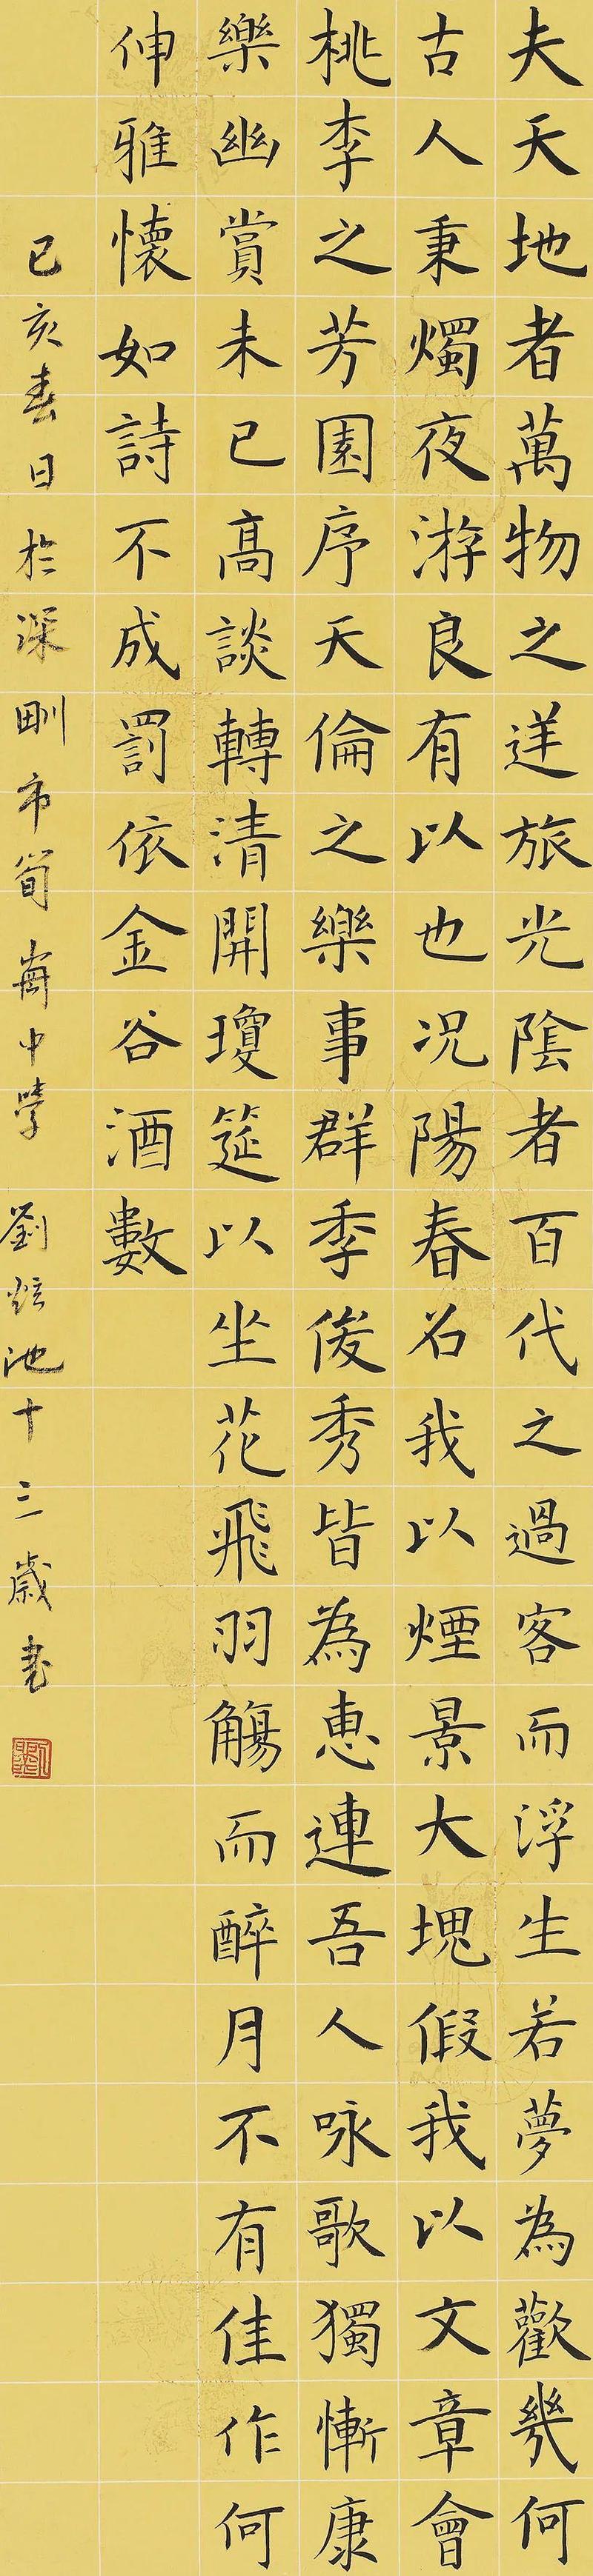 夫天地者萬物之逆旅光陰者百代之過客而浮生若夢為歡幾何
古人秉燭夜游良有以也況陽春召我以煙景大塊假我以文章會
桃李之芳園序天倫之樂事群季俊秀皆為惠連吾人咏歌獨慚康
樂幽賞未已高談轉清開瓊筵以坐花飛羽觴而醉月不有佳作何
伸雅懷如詩不成罰依金谷酒數
己亥春日於深圳市筍崗中學劉炫池十三歲書